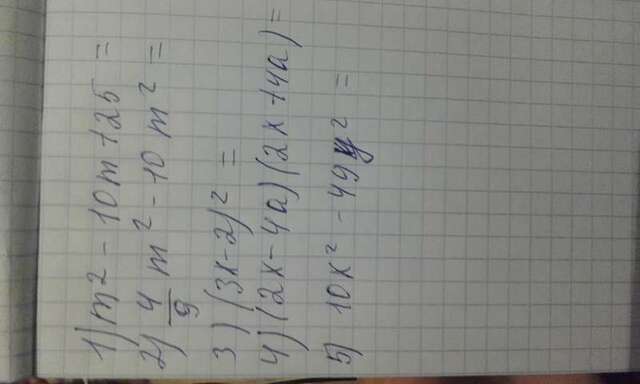 1) m² - 10m + 25 =
2) 4/9 m² - 10 m² =
3) (3x-2)² =
4) (2x - 4a)(2x + 4a) =
5) 10x² - 49y² =